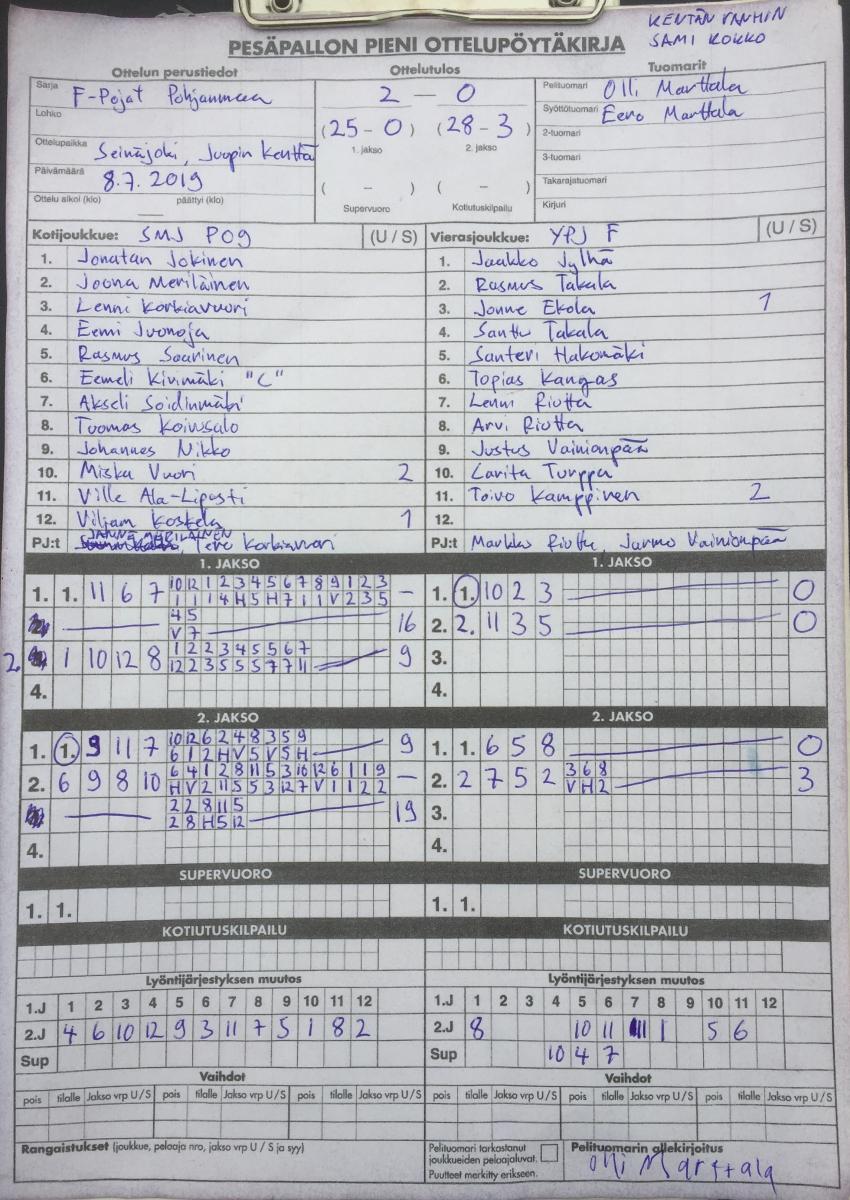 KENTÄN VANHIN
SAMI KOKKO
PESÄPALLON PIENI OTTELUPÖYTÄKIRJA
Ottelun perustiedot
Sarja F-Pojat Pohjanmaa
Lohko
Ottelupaikka Seinäjoki, Jupin kenttä
Päivämäärä 8.7.2019
Ottelu alkoi (klo) päättyi (klo)
Ottelutulos
2 – 0
(25-0) (28-3)
1. jakso 2. jakso
( - ) ( - )
Supervuoro Kotiutuskilpailu
Tuomarit
Pelituomari Olli Marttala
Syöttötuomari Eero Marttala
2-tuomari
3-tuomari
Takarajatuomari
Kirjuri
Kotijoukkue: SMJ P09 (U / S)
1. Jonatan Jokinen
2. Joona Meriläinen
3. Lenni Korkiavuori
4. Eemi Juonoja
5. Rasmus Saarinen
6. Eemeli Kivimäki "C"
7. Akseli Soidinmäki
8. Tuomas Koivusalo
9. Johannes Nikko
10. Miska Vuori 2
11. Ville Ala-Lipasti
12. Viljam Koskela 1
JANNE MERILÄINEN
PJ:t , Tero Korkiavuori
Vierasjoukkue: YPJ F (U / S)
1. Jaakko Jylhä
2. Rasmus Takala
3. Jonne Ekola 1
4. Santtu Takala
5. Santeri Hakomäki
6. Topias Kangas
7. Lenni Riutta
8. Arvi Riutta
9. Justus Vainionpää
10. Carita Turppa
11. Toivo Kamppinen 2
12.
PJ:t Markko Riutta, Jarmo Vainionpää
1. JAKSO
1. 1. 11 6 7 10 12 1 2 3 4 5 6 7 8 9 1 2 3 –
1 1 1 4 H 5 H 7 1 1 V 2 3 5
4 5
V 7 16
2. 1 10 12 8 1 2 2 3 4 5 5 6 7 9
12 2 3 5 5 5 7 7 11
4.
1. JAKSO
1. 1. 10 2 3 0
2. 2. 11 3 5 0
3.
4.
2. JAKSO
1. 1. 9 11 7 10 12 6 2 4 8 3 5 9 9
6 1 2 H V 5 V 5 H
2. 6 9 8 10 6 4 1 2 8 11 5 3 10 12 6 1 1 9 –
H V 2 11 5 5 3 12 7 V 1 1 2 2
2 2 8 11 5
2 8 H 5 12 19
4.
2. JAKSO
1. 1. 6 5 8 0
2. 2 7 5 2 3 6 8 3
V H 2
3.
4.
SUPERVUORO
1. 1.
SUPERVUORO
1. 1.
KOTIUTUSKILPAILU
KOTIUTUSKILPAILU
Lyöntijärjestyksen muutos
1.J 1 2 3 4 5 6 7 8 9 10 11 12
2.J 4 6 10 12 9 3 11 7 5 1 8 2
Sup
Lyöntijärjestyksen muutos
1.J 1 2 3 4 5 6 7 8 9 10 11 12
2.J 8 10 11 1 5 6
Sup 10 4 7
Vaihdot
pois tilalle Jakso vrp U / S pois tilalle Jakso vrp U / S pois tilalle Jakso vrp U / S
Vaihdot
pois tilalle Jakso vrp U / S pois tilalle Jakso vrp U / S pois tilalle Jakso vrp U / S
Rangaistukset (joukkue, pelaaja nro, jakso vrp U / S ja syy)
Pelituomari tarkastanut
joukkueiden pelaajaluvat.
Puutteet merkitty erikseen.
Pelituomarin allekirjoitus
Olli Marttala